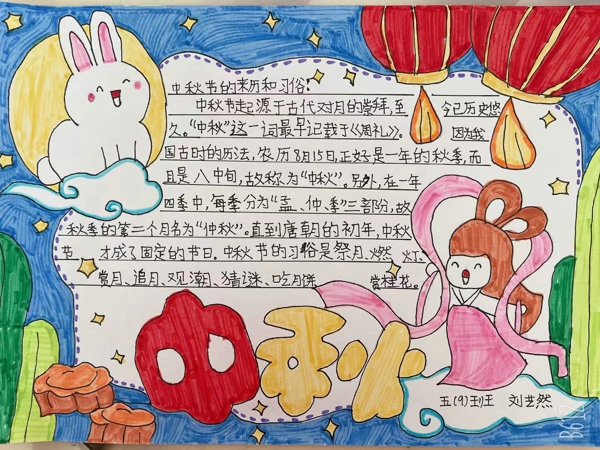 中秋节的来历和习俗:
中秋节起源于古代对月的崇拜,至今已历史悠
久。“中秋”这一词最早记载于《周礼》。因为我
国古时的历法,农历8月15日,正好是一年的秋季,而
且是八中旬,故称为“中秋”。另外,在一年
四季中,每季分为“孟、仲、季”三部份,故
秋季的第二个月名为“仲秋”。直到唐朝的初年,中秋
节才成了固定的节日。中秋节的习俗是祭月、燃灯、
赏月、追月、观潮、猜谜、吃月饼赏桂花。
中秋
五(9)班 刘艺然